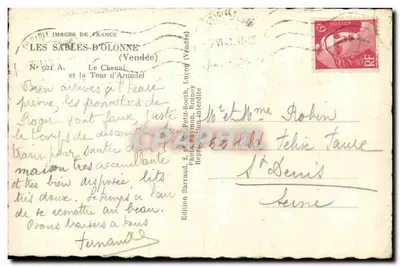 IMAGES DE FRANCE
LES SABLES-D'OLONNE
(Vendée)
Nº 921 A. Le Chenal
et la Tour d'Arundel
Bien arrivés à l'heure
prévue, les pronostics de
Roger sont faux, juste
le temps de descendre du
train pour sauter dans
maison très accueillante
et très bien disposée, lits
très doux. Le temps a l'air
de se remettre au beau.
Bons baisers à tous
Fernande
Edition Barraud, Luçon (Vendée)
Reproduction interdite
RF
Mr et Mme Robin
Rue Félix Faure
St Denis
Seine